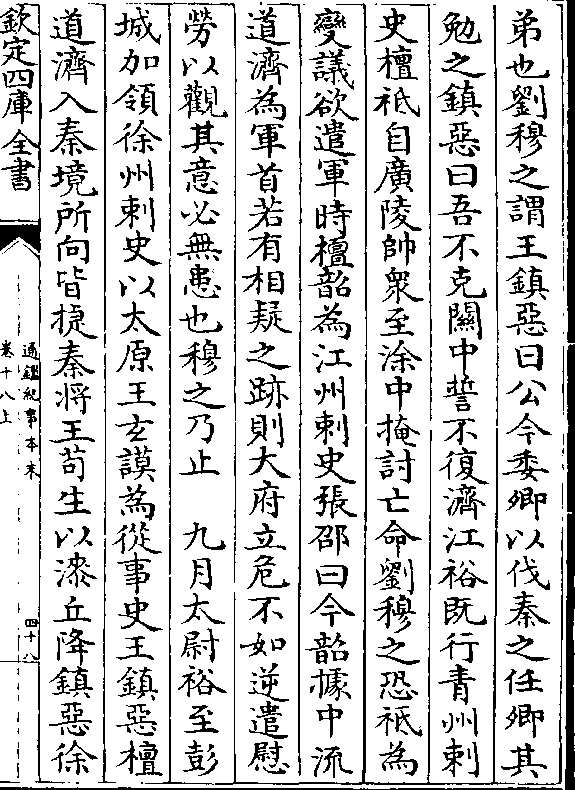 弟也劉穆之謂王鎮惡曰公今委卿以伐秦之任卿其
勉之鎮惡曰吾不克關中誓不復濟江裕既行青州刺
史檀祗自廣陵帥衆至涂中掩討亡命劉穆之恐祗為
變議欲遣軍時檀韶為江州刺史張邵曰今韶據中流
道濟為軍首若有相疑之跡則大府立危不如逆遣慰
勞以觀其意必無患也穆之乃止　九月太尉裕至彭
城加領徐州刺史以太原王玄謨為從事史王鎮惡檀
道濟入秦境所向皆捷秦將王苟生以漆丘降鎮惡徐
欽定四庫全書
通鑑紀事本末
卷十八上
四十八